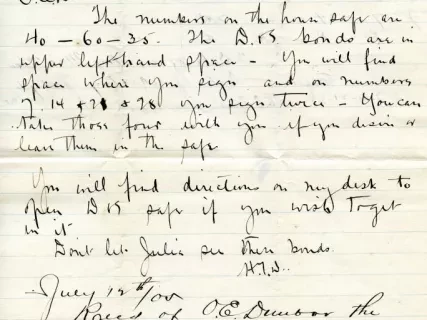 The numbers on the house safe are
40 – 60 – 35. The D.19 bonds are in
upper left hand space – You will find
space where you sign and on numbers
7, 14 & 21 & 28 you sign twice – You can
take those four with you if you desire or
leave them in the safe
You will find directions on my desk to
open D 19 safe if you wish to get
in it
Dont let Julia see these bonds.
H.I.D..
July 12th/00
Recd of O.E. Dunbar the